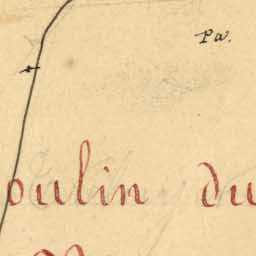 Pa.
oulin du